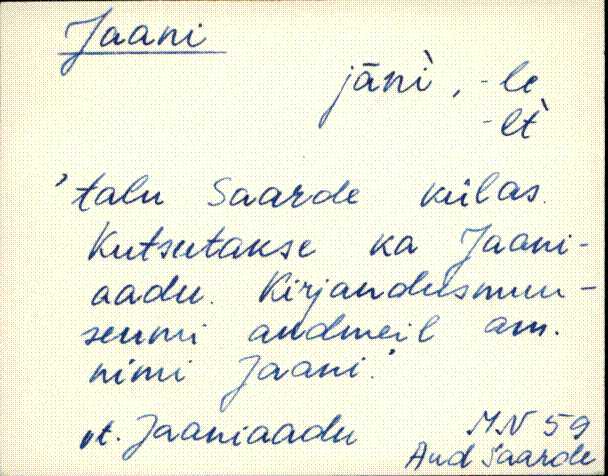 Jaani
jāǹì, -le
-lt̀
'talu Saarde külas.
Kutsutakse ka Jaani-
aadu. Kirjandusmuu-
seumi andmeil am.
nimi Jaani.'
vt. Jaaniaadu
MN 59
Aud Saarde